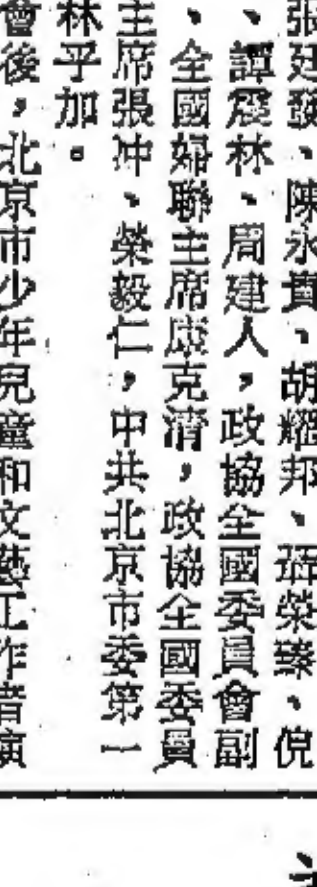 張廷發、陳永貴、胡耀邦、聶榮臻、倪
、譚震林、周建人，政協全國委員會副
、全國婦聯主席康克清，政協全國委員
主席張冲、榮毅仁，中共北京市委第一
林乎加。
會後，北京市少年兒童和文藝工作者演